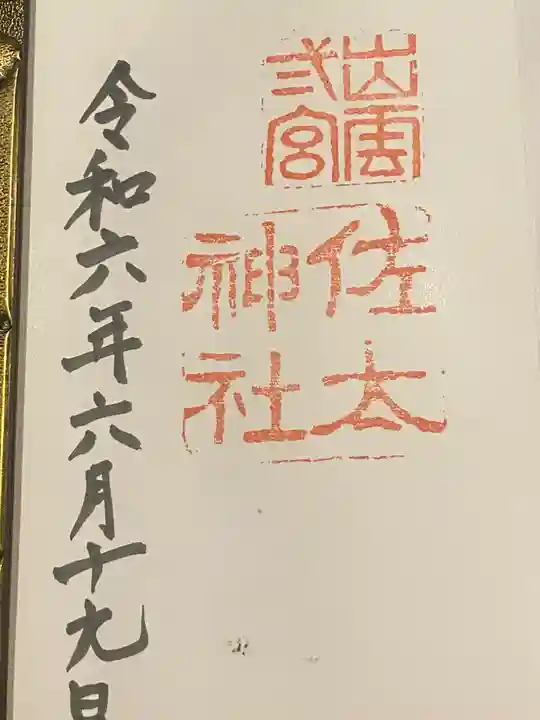 出雲
弍宮
佐太
神社
令和六年六月十九日